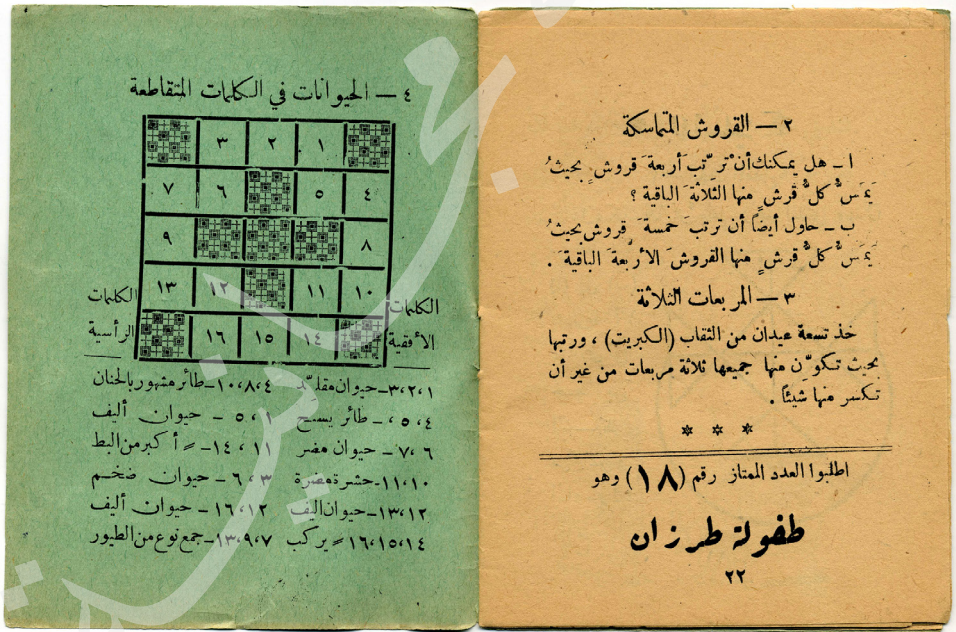 ٢ — القروش المتماسكة
ا — هل يمكنك أن ترتّبَ أربعةَ قروشٍ بحيثُ
يَمَسُّ كلُّ قرشٍ منها الثلاثةَ الباقية ؟
ب — حاول أيضاً أن ترتبَ خمسةَ قروش بحيثُ
يَمَسُّ كلُّ قرشٍ منها القروشَ الأربعةَ الباقيةَ .
٣ — المربعات الثلاثة
خذ تسعة عيدان من الثقاب (الكبريت) ، ورتبها
بحيث تكوِّن منها جميعها ثلاثة مربعات من غير أن
تكسر منها شيئاً .
* * *
اطلبوا العدد الممتاز رقم (١٨) وهو
طفولة طرزان
٢٢
٤ — الحيوانات في الكلمات المتقاطعة
١ ٢ ٣
٤ ٥ ٦ ٧
٨ ٩
١٠ ١١ ١٢ ١٣
١٤ ١٥ ١٦
الكلمات الأفقية
١،٢،٣ـ حيوان مقلّد
٤،٥،ـ طائر يسبح
٦،٧ـ حيوان مضر
١٠،١١ـ حشرة مضرة
١٢،١٣ـ حيوان اليف
١٤،١٥،١٦ = يركب
الكلمات الرأسية
٤،٨،١٠ـ طائر مشهور بالحنان
١،٥ـ حيوان أليف
١١،١٤ـ = أكبر من البط
٣،٦ـ حيوان ضخم
١٢،١٦ـ حيوان أليف
٧،٩،١٣ـ جمع نوع من الطيور